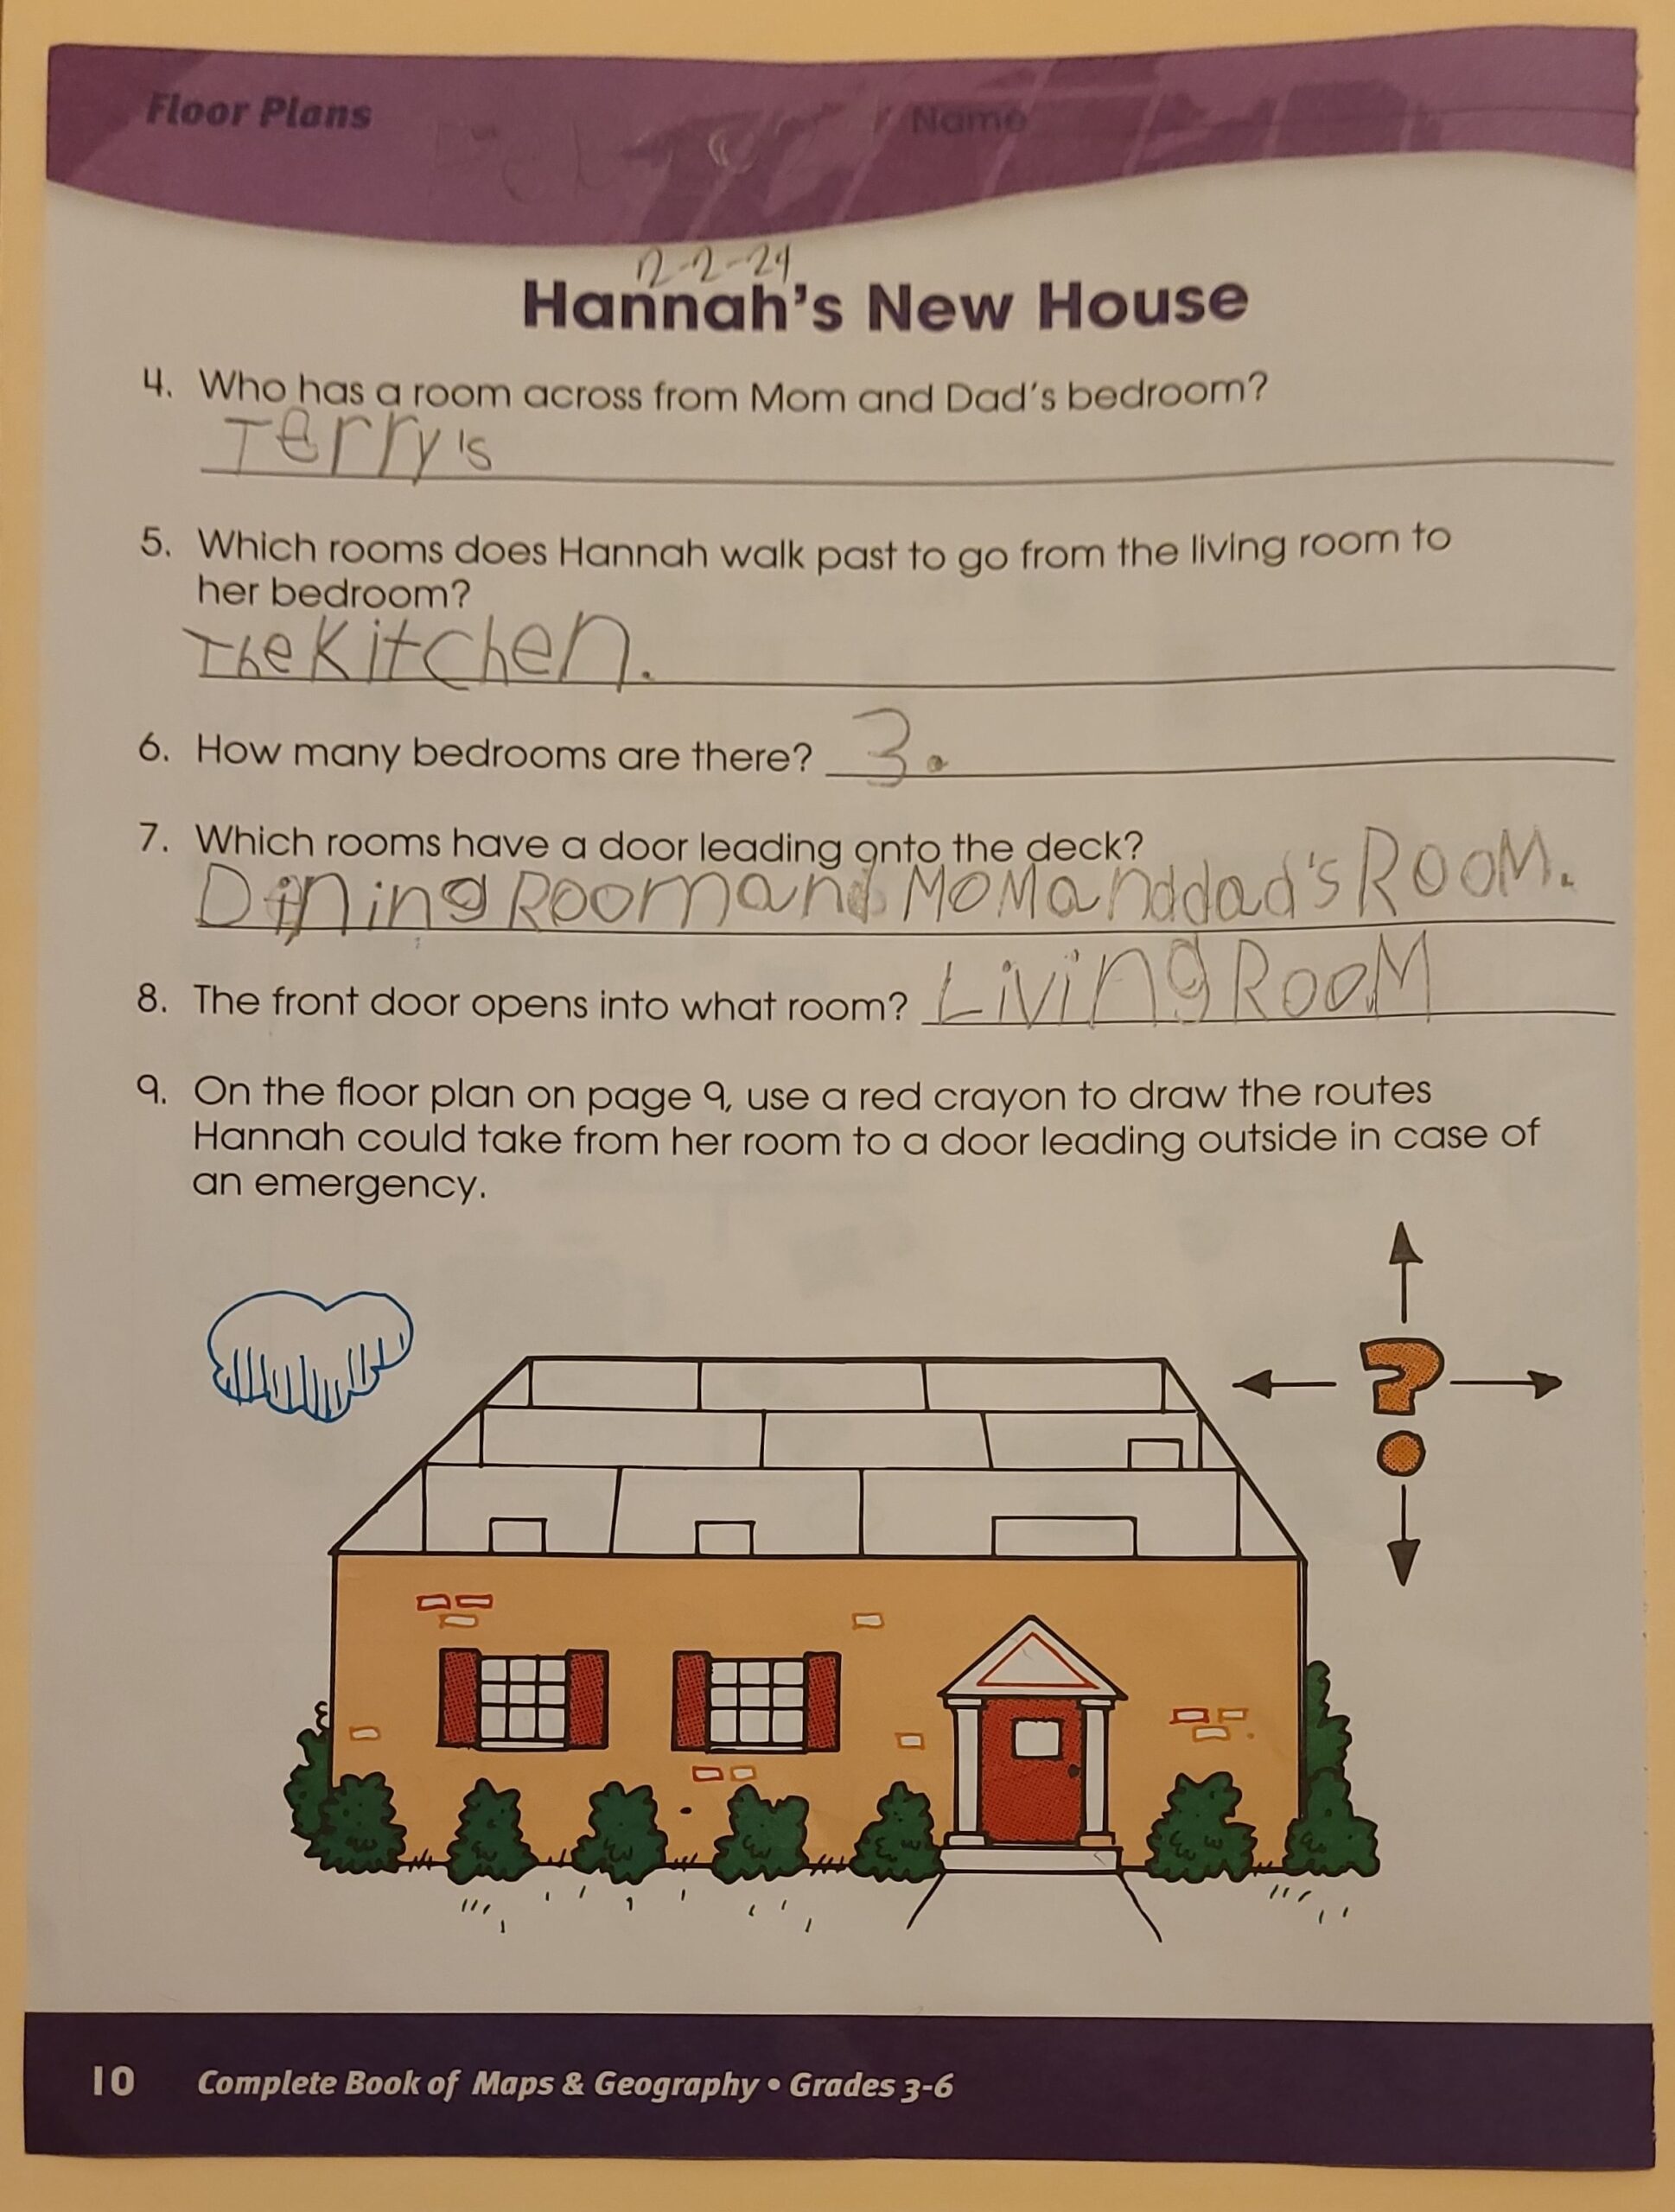 Floor Plans Name
12-2-24
Hannah's New House
4. Who has a room across from Mom and Dad's bedroom?
Terry's
5. Which rooms does Hannah walk past to go from the living room to
her bedroom?
The Kitchen.
6. How many bedrooms are there? 3.
7. Which rooms have a door leading onto the deck?
Dining Room and MoM and dad's RooM.
8. The front door opens into what room? Living RooM
9. On the floor plan on page 9, use a red crayon to draw the routes
Hannah could take from her room to a door leading outside in case of
an emergency.
?
10 Complete Book of Maps & Geography • Grades 3-6